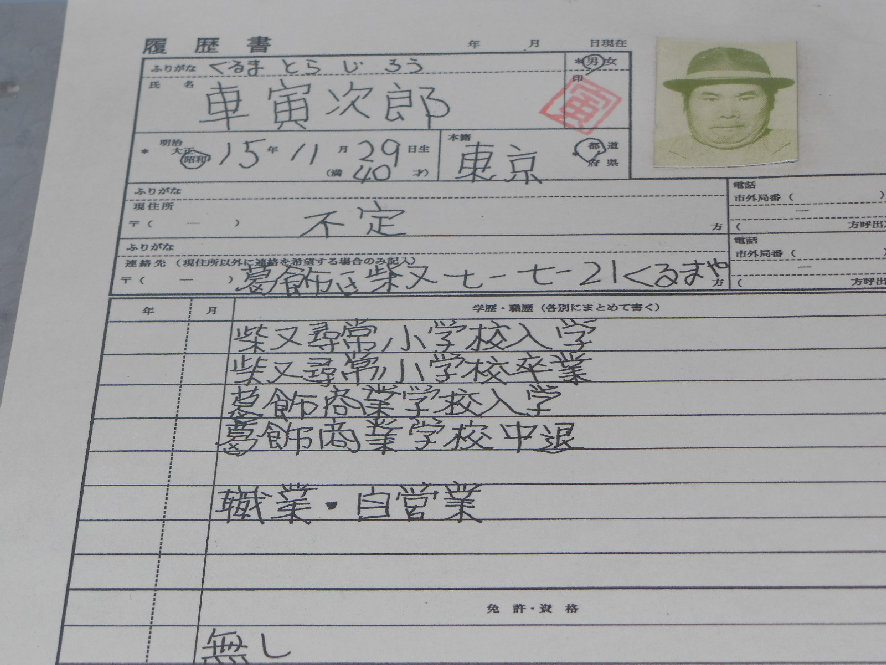 履歴書 年 月 日現在
ふりがな くるま とら じ ろう
*男女
氏名 車寅次郎
印 寅
* 明治 大正 昭和 15年11月29日生
(満 40 才)
本籍 東京 都道府県
ふりがな
現住所
〒( ー ) 不定 方
電話
市外局番( )
ー
( 方呼出
ふりがな
連絡先 (現住所以外に連絡を希望する場合のみ記入)
〒( ー ) 葛飾区柴又七-七-21くるまや 方
電話
市外局番( )
ー
( 方呼出
年 月 学歴・職歴(各別にまとめて書く)
柴又尋常小学校入学
柴又尋常小学校卒業
葛飾商業学校入学
葛飾商業学校中退
職業・自営業
免許・資格
無し